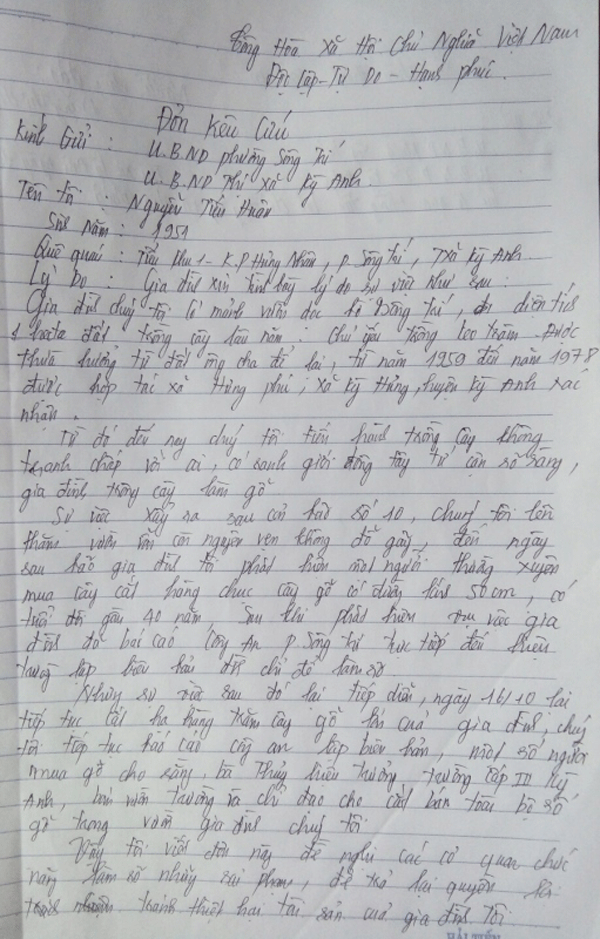 Cộng Hòa Xã Hội Chủ Nghĩa Việt Nam
Độc Lập - Tự Do - Hạnh phúc.
Đơn Kêu Cứu
Kính Gửi : U.B.ND phường Sông Trí
U.B.ND Thị Xã Kỳ Anh.
Tên tôi : Nguyễn Tiến Huân
Sinh năm : 1951
Quê quán : Tiểu khu 1 - K.P Hưng Nhân, P. Sông Trí, TXã Kỳ Anh
Lý Do : Gia đình xin trình bày lý do sự việc như sau :
Gia đình chúng tôi có mảnh vườn dọc bờ Sông Trí, diện tích
1 hecta đất trồng cây lâu năm : chủ yếu trồng keo tràm. Được
thừa hưởng từ đất ông cha để lại, từ năm 1959 đến năm 1978
được hợp tác xã Hưng phú, xã Kỳ Hưng, huyện Kỳ Anh xác
nhận.
Từ đó đến nay chúng tôi tiến hành trồng cây không
tranh chấp với ai, có ranh giới đông tây tứ cận rõ ràng,
gia đình trồng cây làm gỗ.
Sự việc xẩy ra sau cơn bão số 10, chúng tôi lên
thăm vườn vẫn còn nguyên vẹn không đổ gãy, đến ngày
sau bão gia đình tôi phát hiện một người thường xuyên
mua cây cắt hàng chục cây gỗ có đường kính 50cm, có
tuổi đời gần 40 năm. Sau khi phát hiện vụ việc gia
đình đã báo cáo Công An P. Sông trí trực tiếp đến hiện
trường lập biên bản đình chỉ để làm rõ
Nhưng sự việc sau đó lại tiếp diễn, ngày 16/10 lại
tiếp tục cắt hạ hàng trăm cây gỗ của gia đình, chúng
tôi tiếp tục báo cáo công an lập biên bản, một số người
mua gỗ cho rằng, bà Thủy hiệu trưởng trường cấp III Kỳ
Anh, trường và chỉ đạo cho cắt bán toàn bộ số
gỗ trong vườn gia đình chúng tôi
Vậy tôi viết đơn này đề nghị các cơ quan chức
năng làm rõ những sai phạm, để trả lại quyền
tránh thiệt hại tài sản của gia đình tôi
HẢI TIẾN